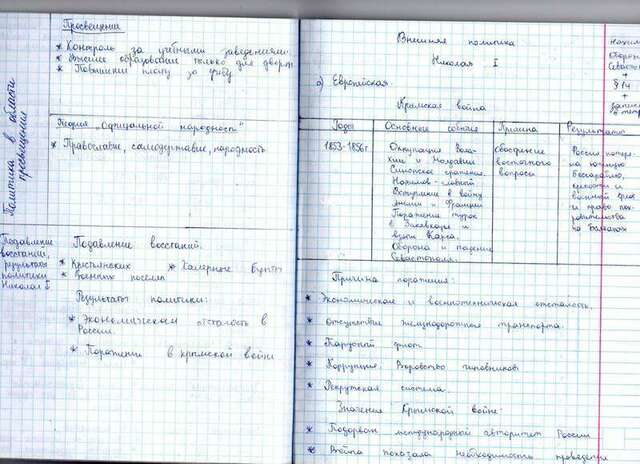 Просвещение
* Контроль за учебными заведениями.
* Высшее образование только для дворян
* Повышение платы за учебу
Политика в области
просвещения
Теория "Официальной народности"
* Православие, самодержавие, народность
Подавление
восстаний,
результаты
политики
Николая I
Подавление восстаний.
* Крестьянских
* Холерные бунты
* Военных поселен
Результаты политики:
* Экономическая отсталость в
России.
* Поражение в крымской войне
Внешняя политика
Николая I
Европейская
Крымская война
Годы
Основные события
Причина
Результаты
1853-1856г
Оккупация Вала-
хии и Молдавии
Синопское сражение.
Нахимов-
Вступление в войну
Англии и Франции
Поражение турок
в Закавказье и
взятие Карса.
Оборона и падение
Севастополя.
обострение
восточного
вопроса
Россия потеря-
ла южную
Бессарабию,
военный флот
и право пок-
ровительства
на Балканах
Причина поражения:
* Экономическая и военнотехническая отсталость.
* Отсутствие железнодорожного транспорта.
* Парусный флот
* Коррупция. Воровство чиновников
* Рекрутская система
Значение Крымской войны:
* Подорван международный авторитет России
* Война показала необходимость проведения
Нахимов
Оборона
Севастополя
+
§14
+
записи